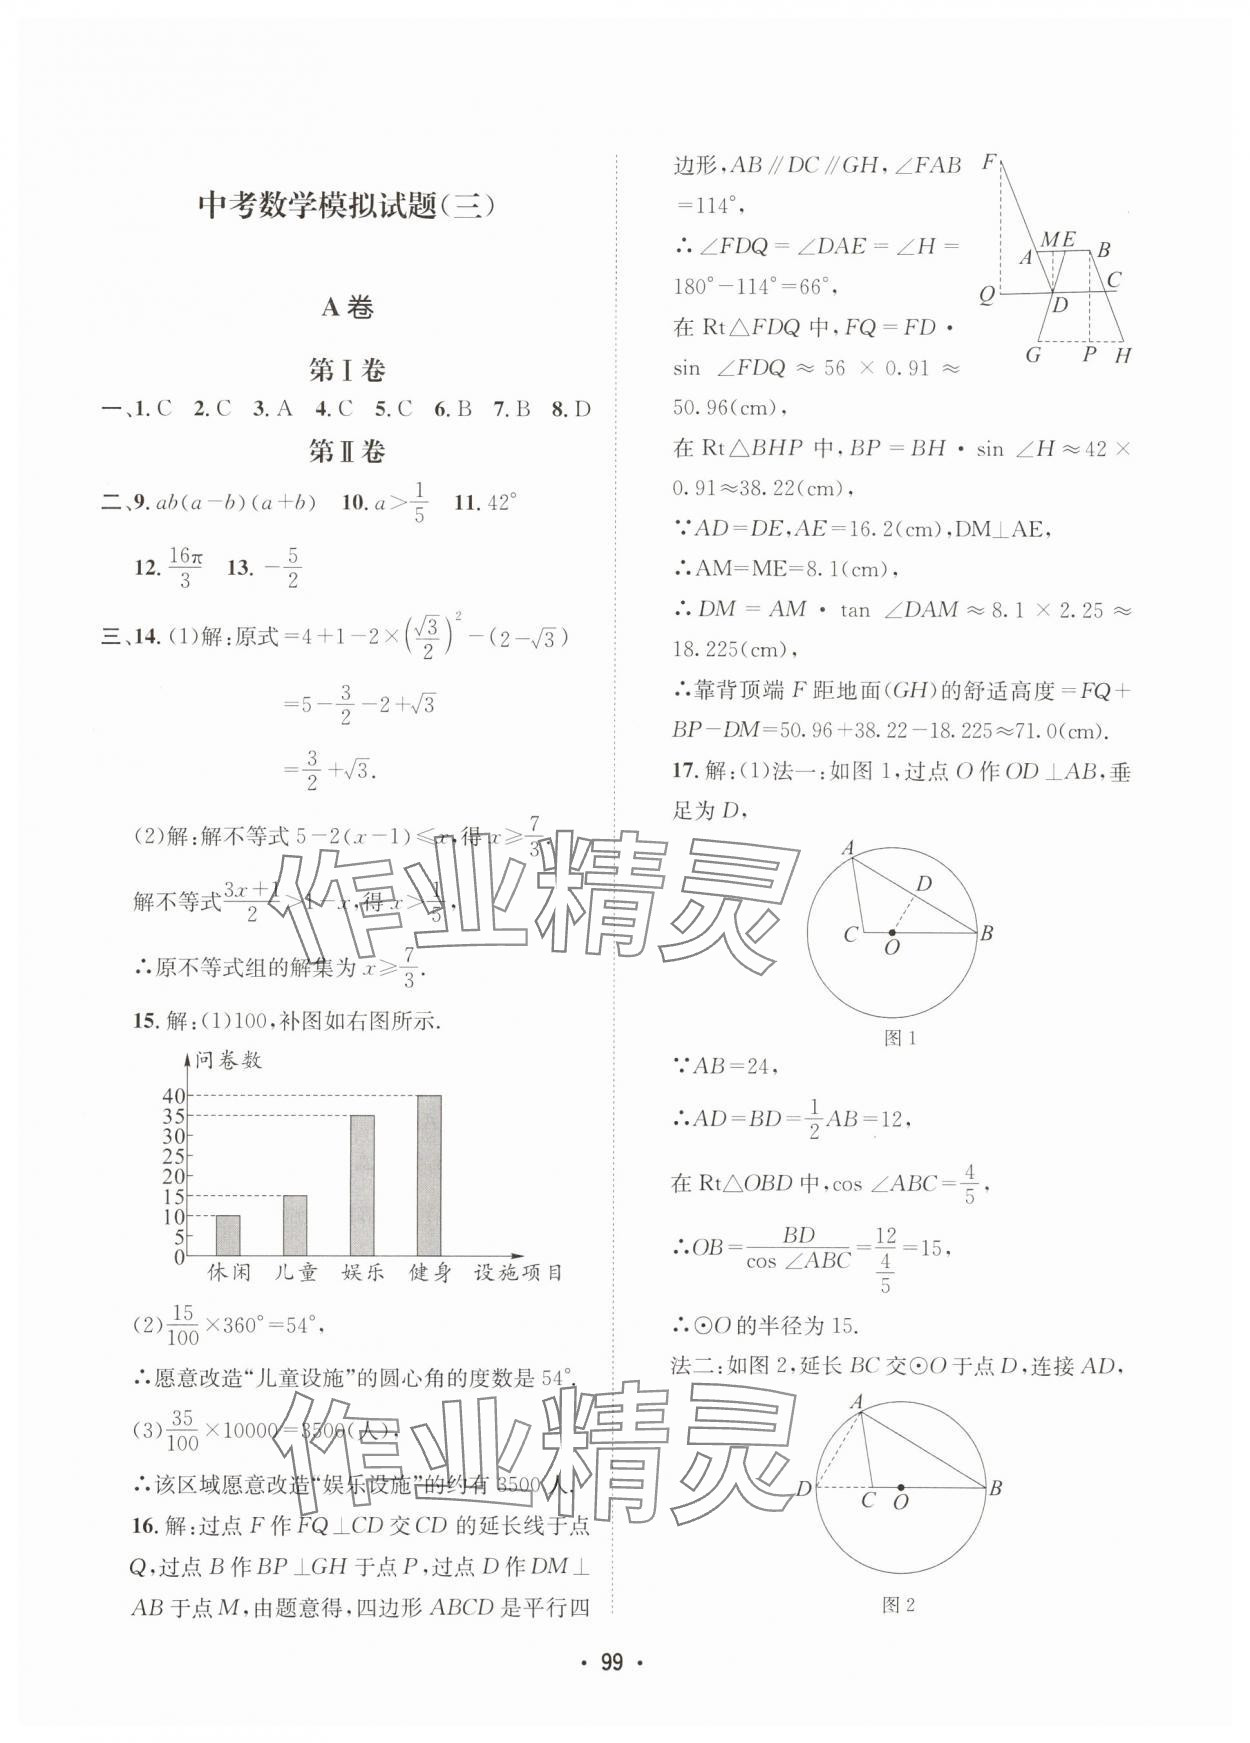 中考数学模拟试题(三)
A卷
第Ⅰ卷
一、1.C 2.C 3.A 4.C 5.C 6.B 7.B 8.D
第Ⅱ卷
二、9.ab(a-b)(a+b) 10.a>1/5 11.42°
12.16π/3 13.-5/2
三、14.(1)解:原式=4+1-2×(√3/2)²-(2-√3)
=5-3/2-2+√3
=3/2+√3.
(2)解:解不等式5-2(x-1)≤x,得x≥7/3.
解不等式(3x+1)/2>1-x,得x>1/5,
∴原不等式组的解集为x≥7/3.
15.解:(1)100,补图如右图所示.
问卷数
40
35
30
25
20
15
10
5
0
休闲 儿童 娱乐 健身 设施项目
(2)15/100×360°=54°,
∴愿意改造“儿童设施”的圆心角的度数是54°.
(3)35/100×10000=3500(人),
∴该区域愿意改造“娱乐设施”的约有3500人.
16.解:过点F作FQ⊥CD交CD的延长线于点
Q,过点B作BP⊥GH于点P,过点D作DM⊥
AB于点M,由题意得,四边形ABCD是平行四
边形,AB∥DC∥GH,∠FAB
=114°,
∴∠FDQ=∠DAE=∠H=
180°-114°=66°,
在Rt△FDQ中,FQ=FD·
sin ∠FDQ≈56×0.91≈
50.96(cm),
F
M E
A B
Q D C
G P H
在Rt△BHP中,BP=BH·sin ∠H≈42×
0.91≈38.22(cm),
∵AD=DE,AE=16.2(cm),DM⊥AE,
∴AM=ME=8.1(cm),
∴DM=AM·tan ∠DAM≈8.1×2.25≈
18.225(cm),
∴靠背顶端F距地面(GH)的舒适高度=FQ+
BP-DM=50.96+38.22-18.225≈71.0(cm).
17.解:(1)法一:如图1,过点O作OD⊥AB,垂
足为D,
A
D
C O B
图1
∵AB=24,
∴AD=BD=1/2AB=12,
在Rt△OBD中,cos ∠ABC=4/5,
∴OB=BD/cos ∠ABC=12/(4/5)=15,
∴⊙O的半径为15.
法二:如图2,延长BC交⊙O于点D,连接AD,
A
D C O B
图2
作业精灵
作业精灵
·99·